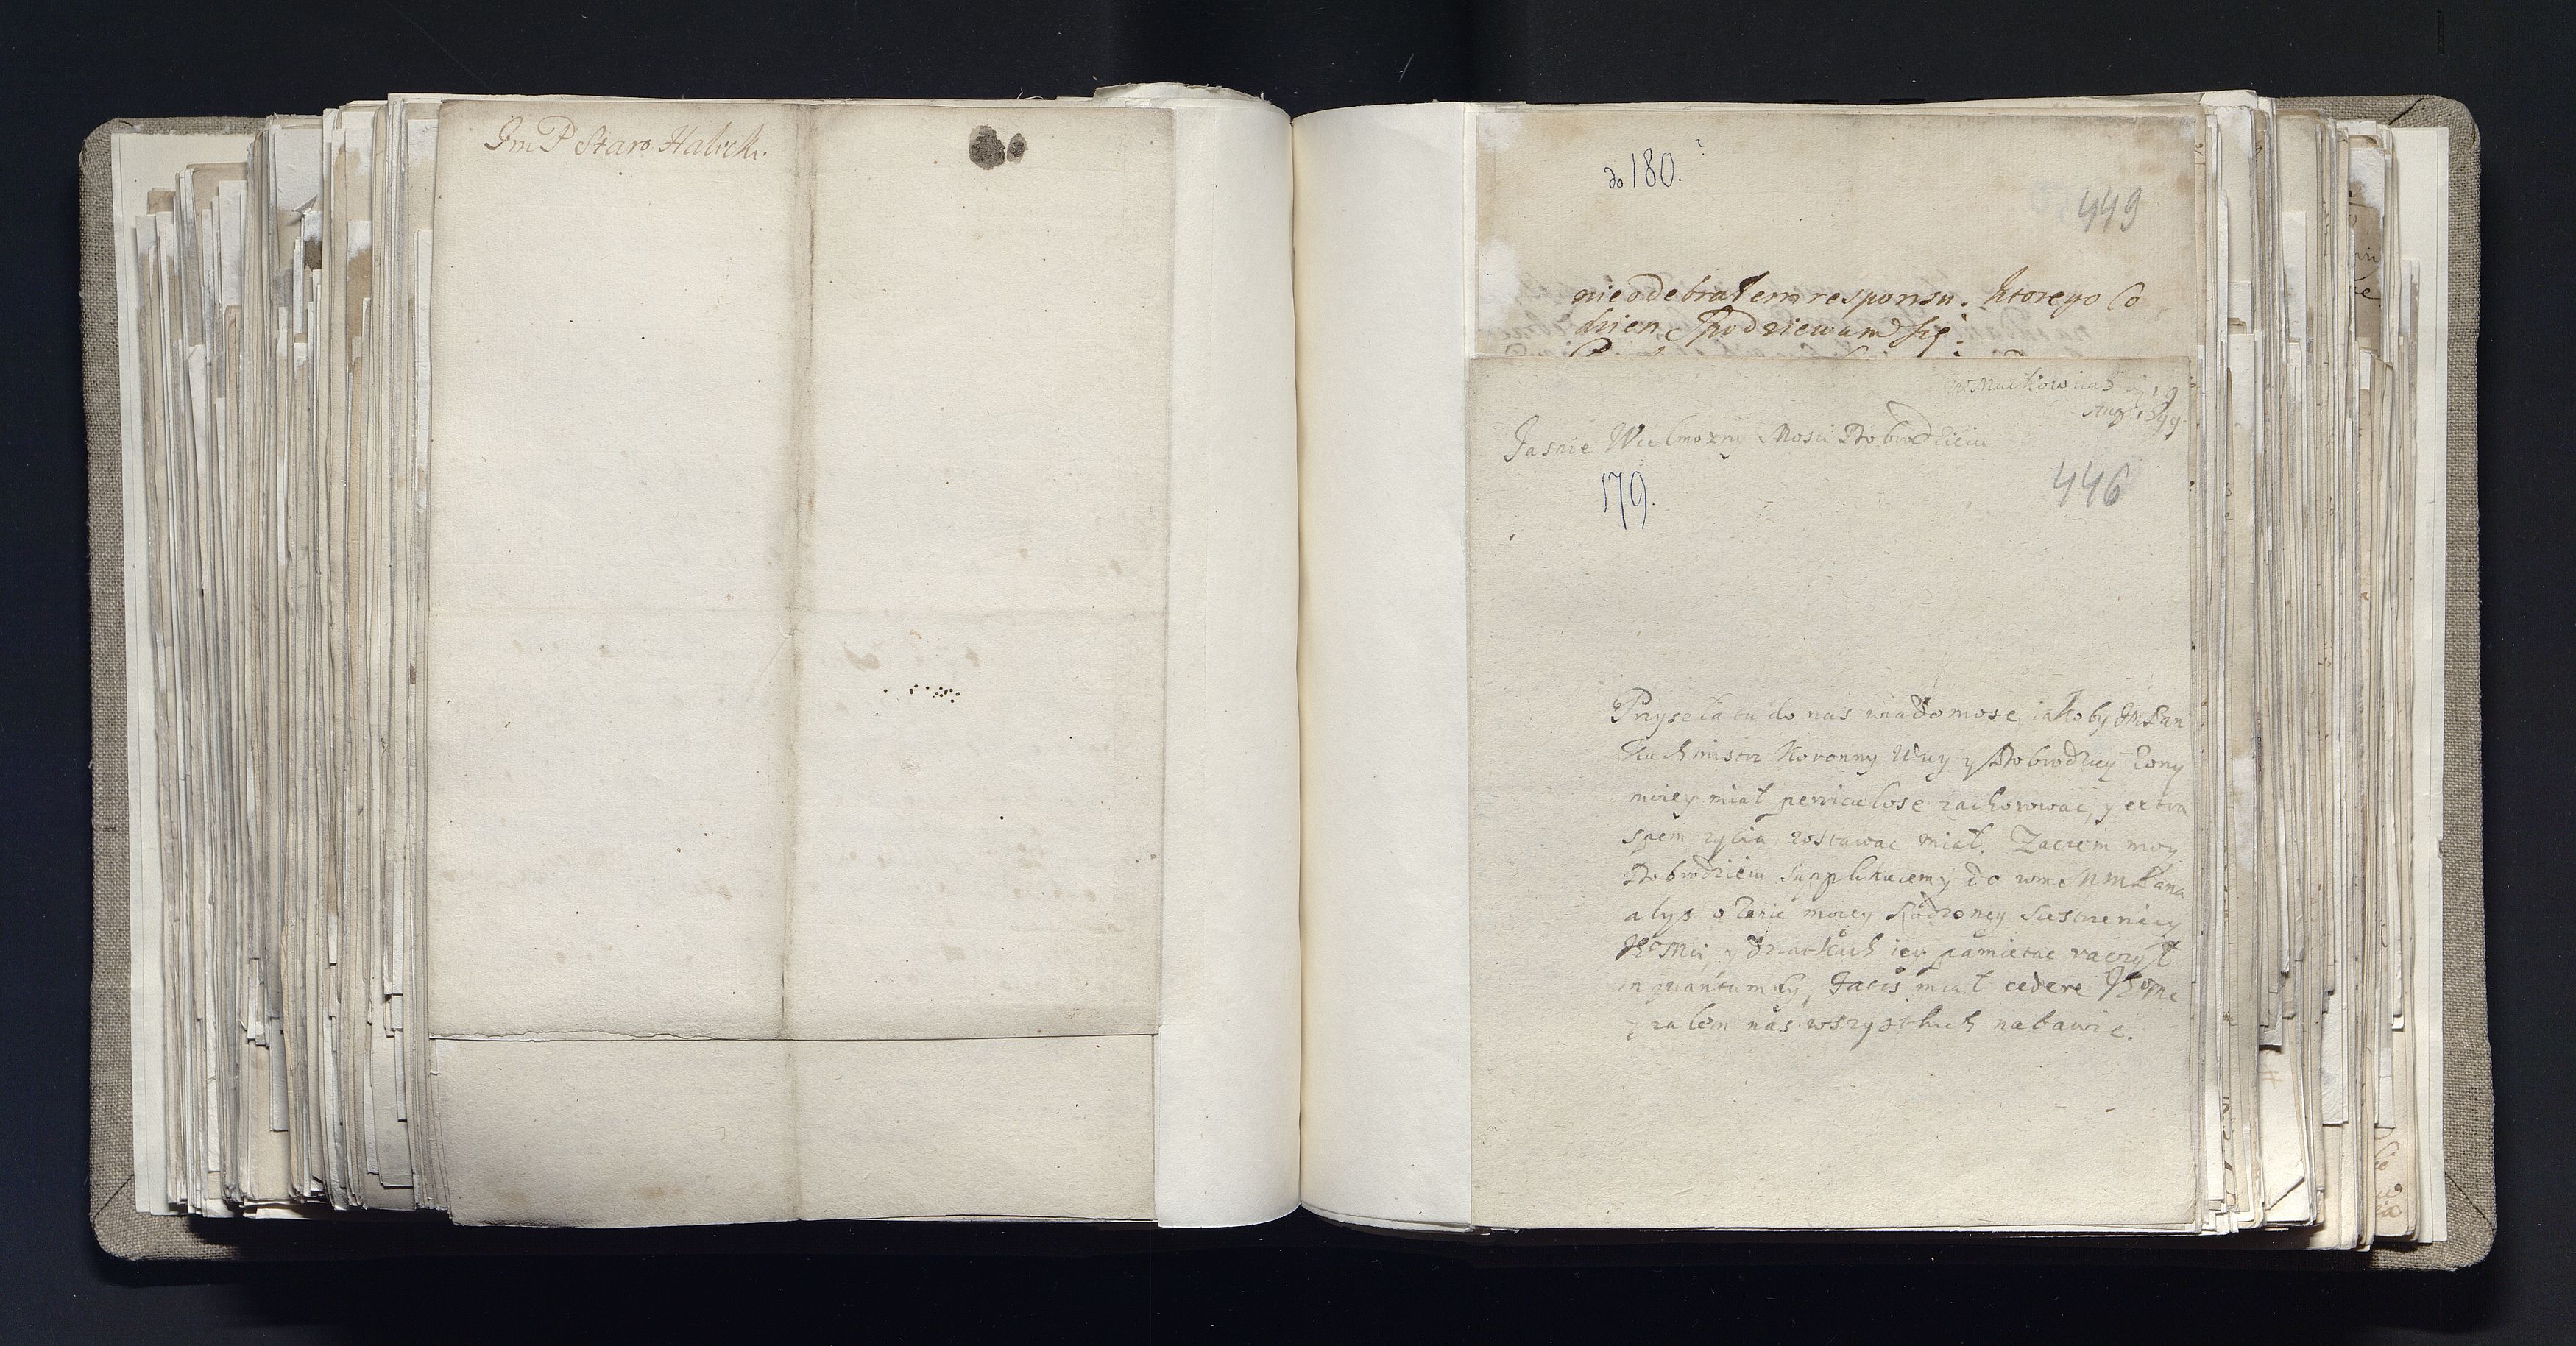 Im P Staro Halick.
do 180. ?
449
nie odebrałem responsu. ktorego Co
dzien Spodziewam się
19
Aug 1699.
Jasnie Wielmozny Mosci Dobrodzieiu
179.
446
Przyszła tu do nas wiadomosc, iakoby Im Pan
Kuchmistrz Koronny Wuy y Dobrodziey Zony
moiey miał periculose zachorowac, y extra
spem zycia zostawac miał. Zaczem moy
Dobrodzieiu supplikuiemy do wmc MM Pana
abys o Zenie moiey Rodzoney Siestrzenicy
IoMci, y dziatkach iey pamietac raczył
in quantum by, Fatis miał cedere IoMc
y zalem nas wszystkich nabawic.